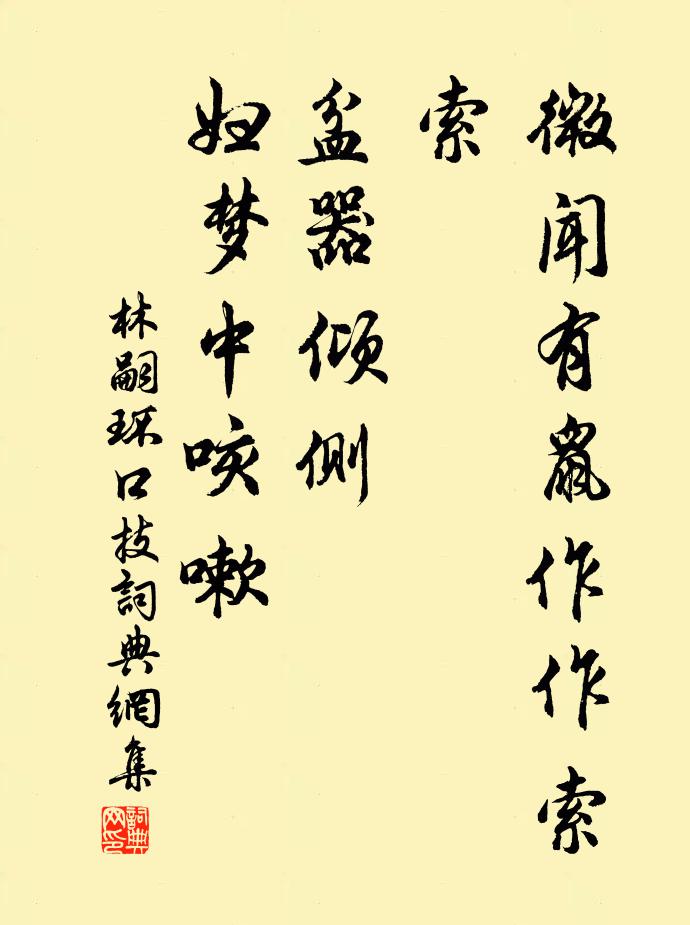 微闻有鼠作作索
索
盆器倾侧
妇梦中咳嗽
林嗣环口技詞典網集
詞典网印